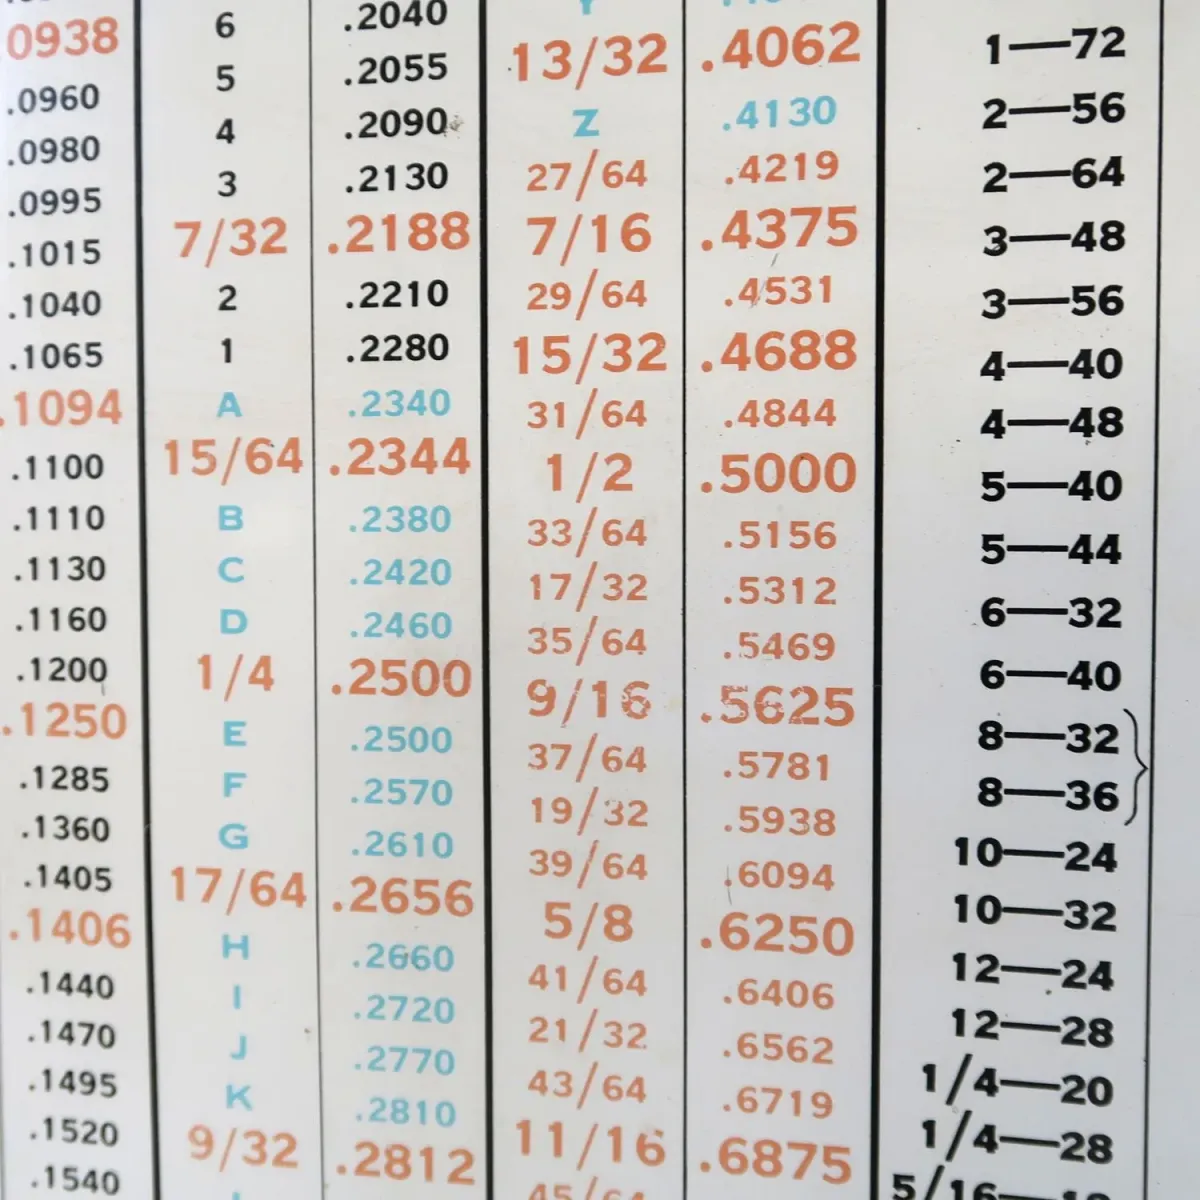 .0938
.0960
.0980
.0995
.1015
.1040
.1065
.1094
.1100
.1110
.1130
.1160
.1200
.1250
.1285
.1360
.1405
.1406
.1440
.1470
.1495
.1520
.1540
6 .2040
5 .2055
4 .2090
3 .2130
7/32 .2188
2 .2210
1 .2280
A .2340
15/64 .2344
B .2380
C .2420
D .2460
1/4 .2500
E .2500
F .2570
G .2610
17/64 .2656
H .2660
I .2720
J .2770
K .2810
9/32 .2812
13/32 .4062
Z .4130
27/64 .4219
7/16 .4375
29/64 .4531
15/32 .4688
31/64 .4844
1/2 .5000
33/64 .5156
17/32 .5312
35/64 .5469
9/16 .5625
37/64 .5781
19/32 .5938
39/64 .6094
5/8 .6250
41/64 .6406
21/32 .6562
43/64 .6719
11/16 .6875
45/64
1—72
2—56
2—64
3—48
3—56
4—40
4—48
5—40
5—44
6—32
6—40
8—32
8—36
10—24
10—32
12—24
12—28
1/4—20
1/4—28
5/16—